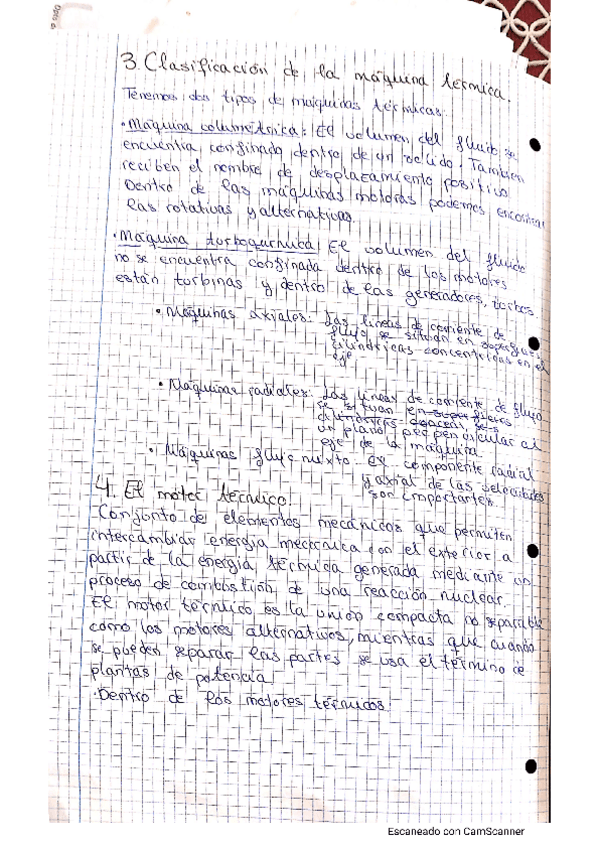 3. Clasificación de la máquina térmica.
Tenemos dos tipos de máquinas térmicas:
• Máquina volumétrica: El volumen del fluido se
encuentra confinado dentro de un recinto. También
reciben el nombre de desplazamiento positivo
Dentro de las máquinas motoras podemos encontrar
las rotativas y alternativas.
• Máquina El volumen del fluido
no se encuentra confinada dentro de los motores
están turbinas y dentro de las generadores,
• Máquinas axiales: Las líneas de corriente de
flujo se situan en
cilíndricas concentricas en el
eje
• Máquinas radiales: Las líneas de corriente de flujo
se situan en superficies
un plano perpendicular al
eje de la máquina.
• Máquinas flujo mixto El componente radial
y axial de las velocidades
son importantes
4. El motor térmico.
Conjunto de elementos mecánicos que permiten
intercambiar energía mecánica con el exterior a
partir de la energía térmica generada mediante un
proceso de combustión de una reacción nuclear.
El motor térmico es la unión compacta no separable
como los motores alternativos, mientras que cuando
se pueden separar las partes se usa el término de
plantas de potencia
• Dentro de los motores térmicos
Escaneado con CamScanner